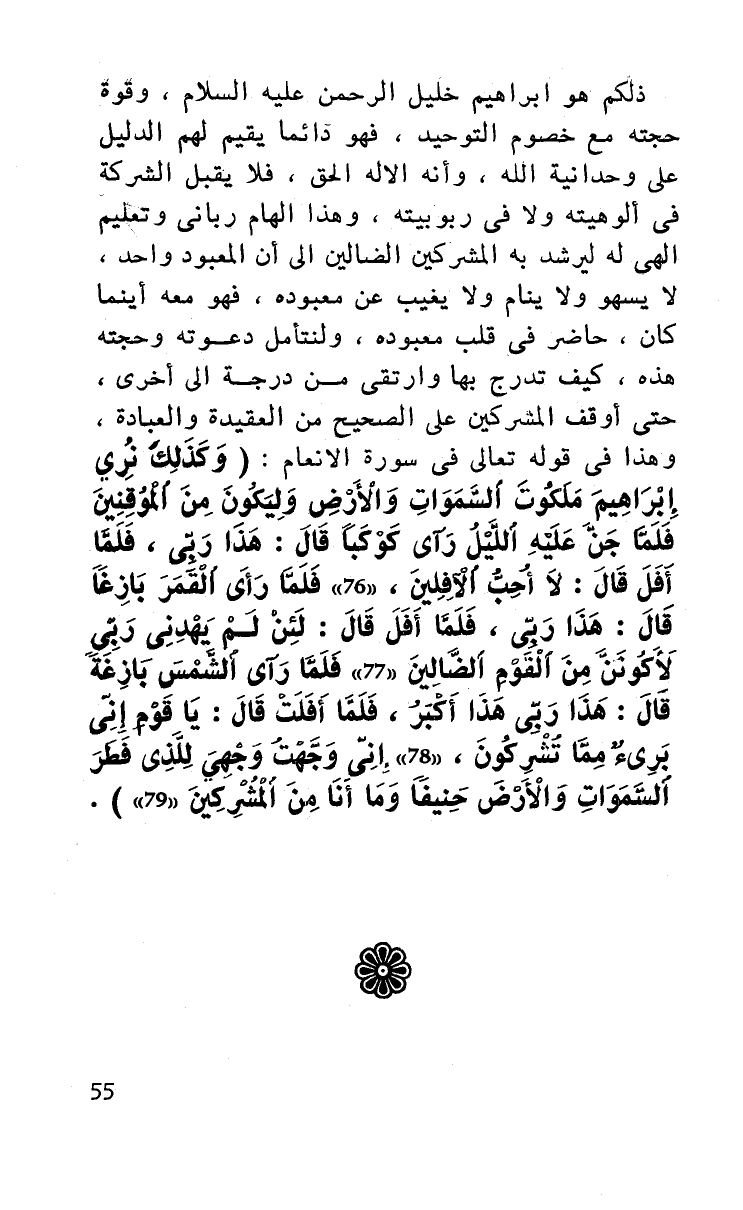 ذلكم هو ابراهيم خليل الرحمن عليه السلام ، وقوة
حجته مع خصوم التوحيد ، فهو دائما يقيم لهم الدليل
على وحدانية الله ، وأنه الاله الحق ، فلا يقبل الشركة
فى ألوهيته ولا فى ربوبيته ، وهذا الهام ربانى وتعليم
الهى له ليرشد به المشركين الضالين الى أن المعبود واحد ،
لا يسهو ولا ينام ولا يغيب عن معبوده ، فهو معه أينما
كان ، حاضر فى قلب معبوده ، ولنتأمل دعـوته وحجته
هذه ، كيف تدرج بها وارتقى مـن درجة الى أخرى ،
حتى أوقف المشركين على الصحيح من العقيدة والعبادة ،
وهذا فى قوله تعالى فى سورة الانعام : ( وَكَذَلِكَ نُرِي
إِبْرَاهِيمَ مَلَكُوتَ ٱلسَّمَوَاتِ وَالْأَرْضِ وَلِيَكُونَ مِنَ ٱلْمُوقِنِينَ
فَلَمَّا جَنَّ عَلَيْهِ ٱللَّيْلُ رَآى كَوْكَباً قَالَ : هَذَا رَبِّى ، فَلَمَّا
أَفَلَ قَالَ : لَا أُحِبُّ ٱلْآفِلِينَ ، «76» فَلَمَّا رَأَى ٱلْقَمَرَ بَازِغًا
قَالَ : هَذَا رَبِّى ، فَلَمَّا أَفَلَ قَالَ : لَئِنْ لَـمْ يَهْدِنِى رَبِّى
لَأَكُونَنَّ مِنَ ٱلْقَوْمِ ٱلضَّالِينَ «77» فَلَمَّا رَآى ٱلشَّمْسَ بَازِغَةً
قَالَ : هَذَا رَبِّى هَذَا أَكْبَرُ ، فَلَمَّا أَفَلَتْ قَالَ : يَا قَوْمِ إِنِّى
بَرِىءٌ مِمَّا تُشْرِكُونَ ، «78» إِنِّى وَجَّهْتُ وَجْهِيَ لِلَّذِى فَطَرَ
ٱلسَّمَوَاتِ وَالْأَرْضَ حَنِيفًا وَمَا أَنَا مِنَ ٱلْمُشْرِكِينَ «79» ) .
55